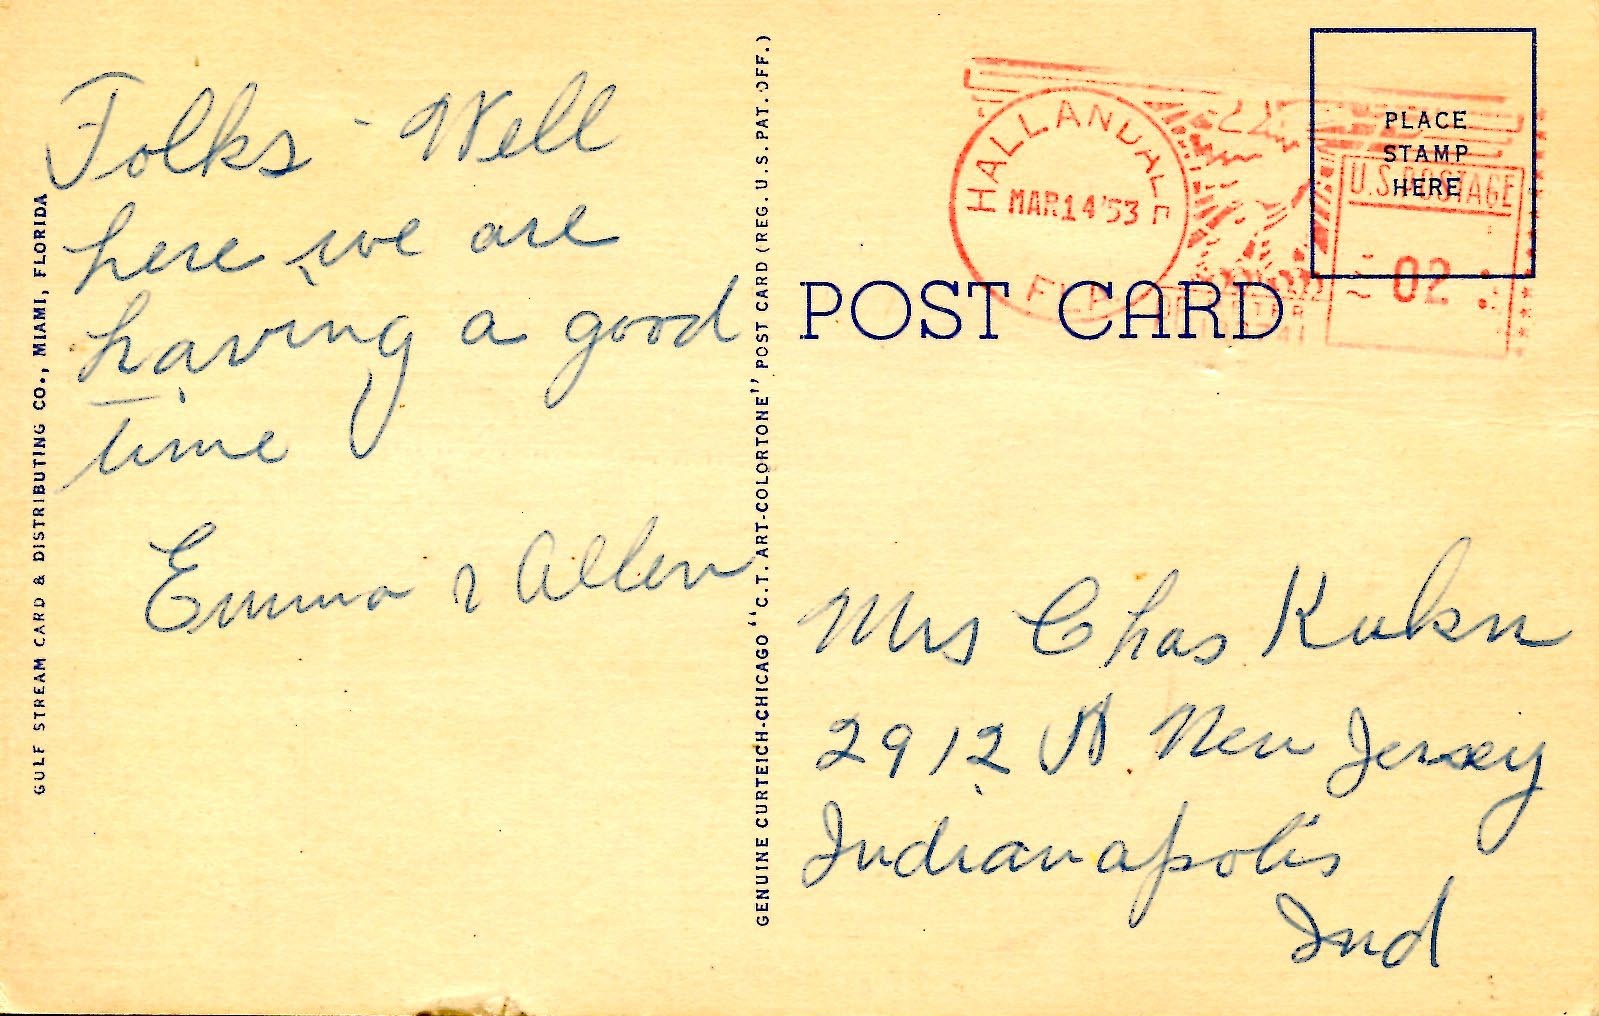 Folks - Well
here we are
having a good
time
Emma & Allen
GULF STREAM CARD & DISTRIBUTING CO., MIAMI, FLORIDA
GENUINE CURTEICH-CHICAGO "C.T. ART-COLORTONE" POST CARD (REG. U.S. PAT. OFF.)
HALLANDALE
MAR 14 '53
FLA
PLACE
STAMP
HERE
U.S. POSTAGE
02
POST CARD
Mrs Chas Kuhn
2912 N. New Jersey
Indianapolis
Ind